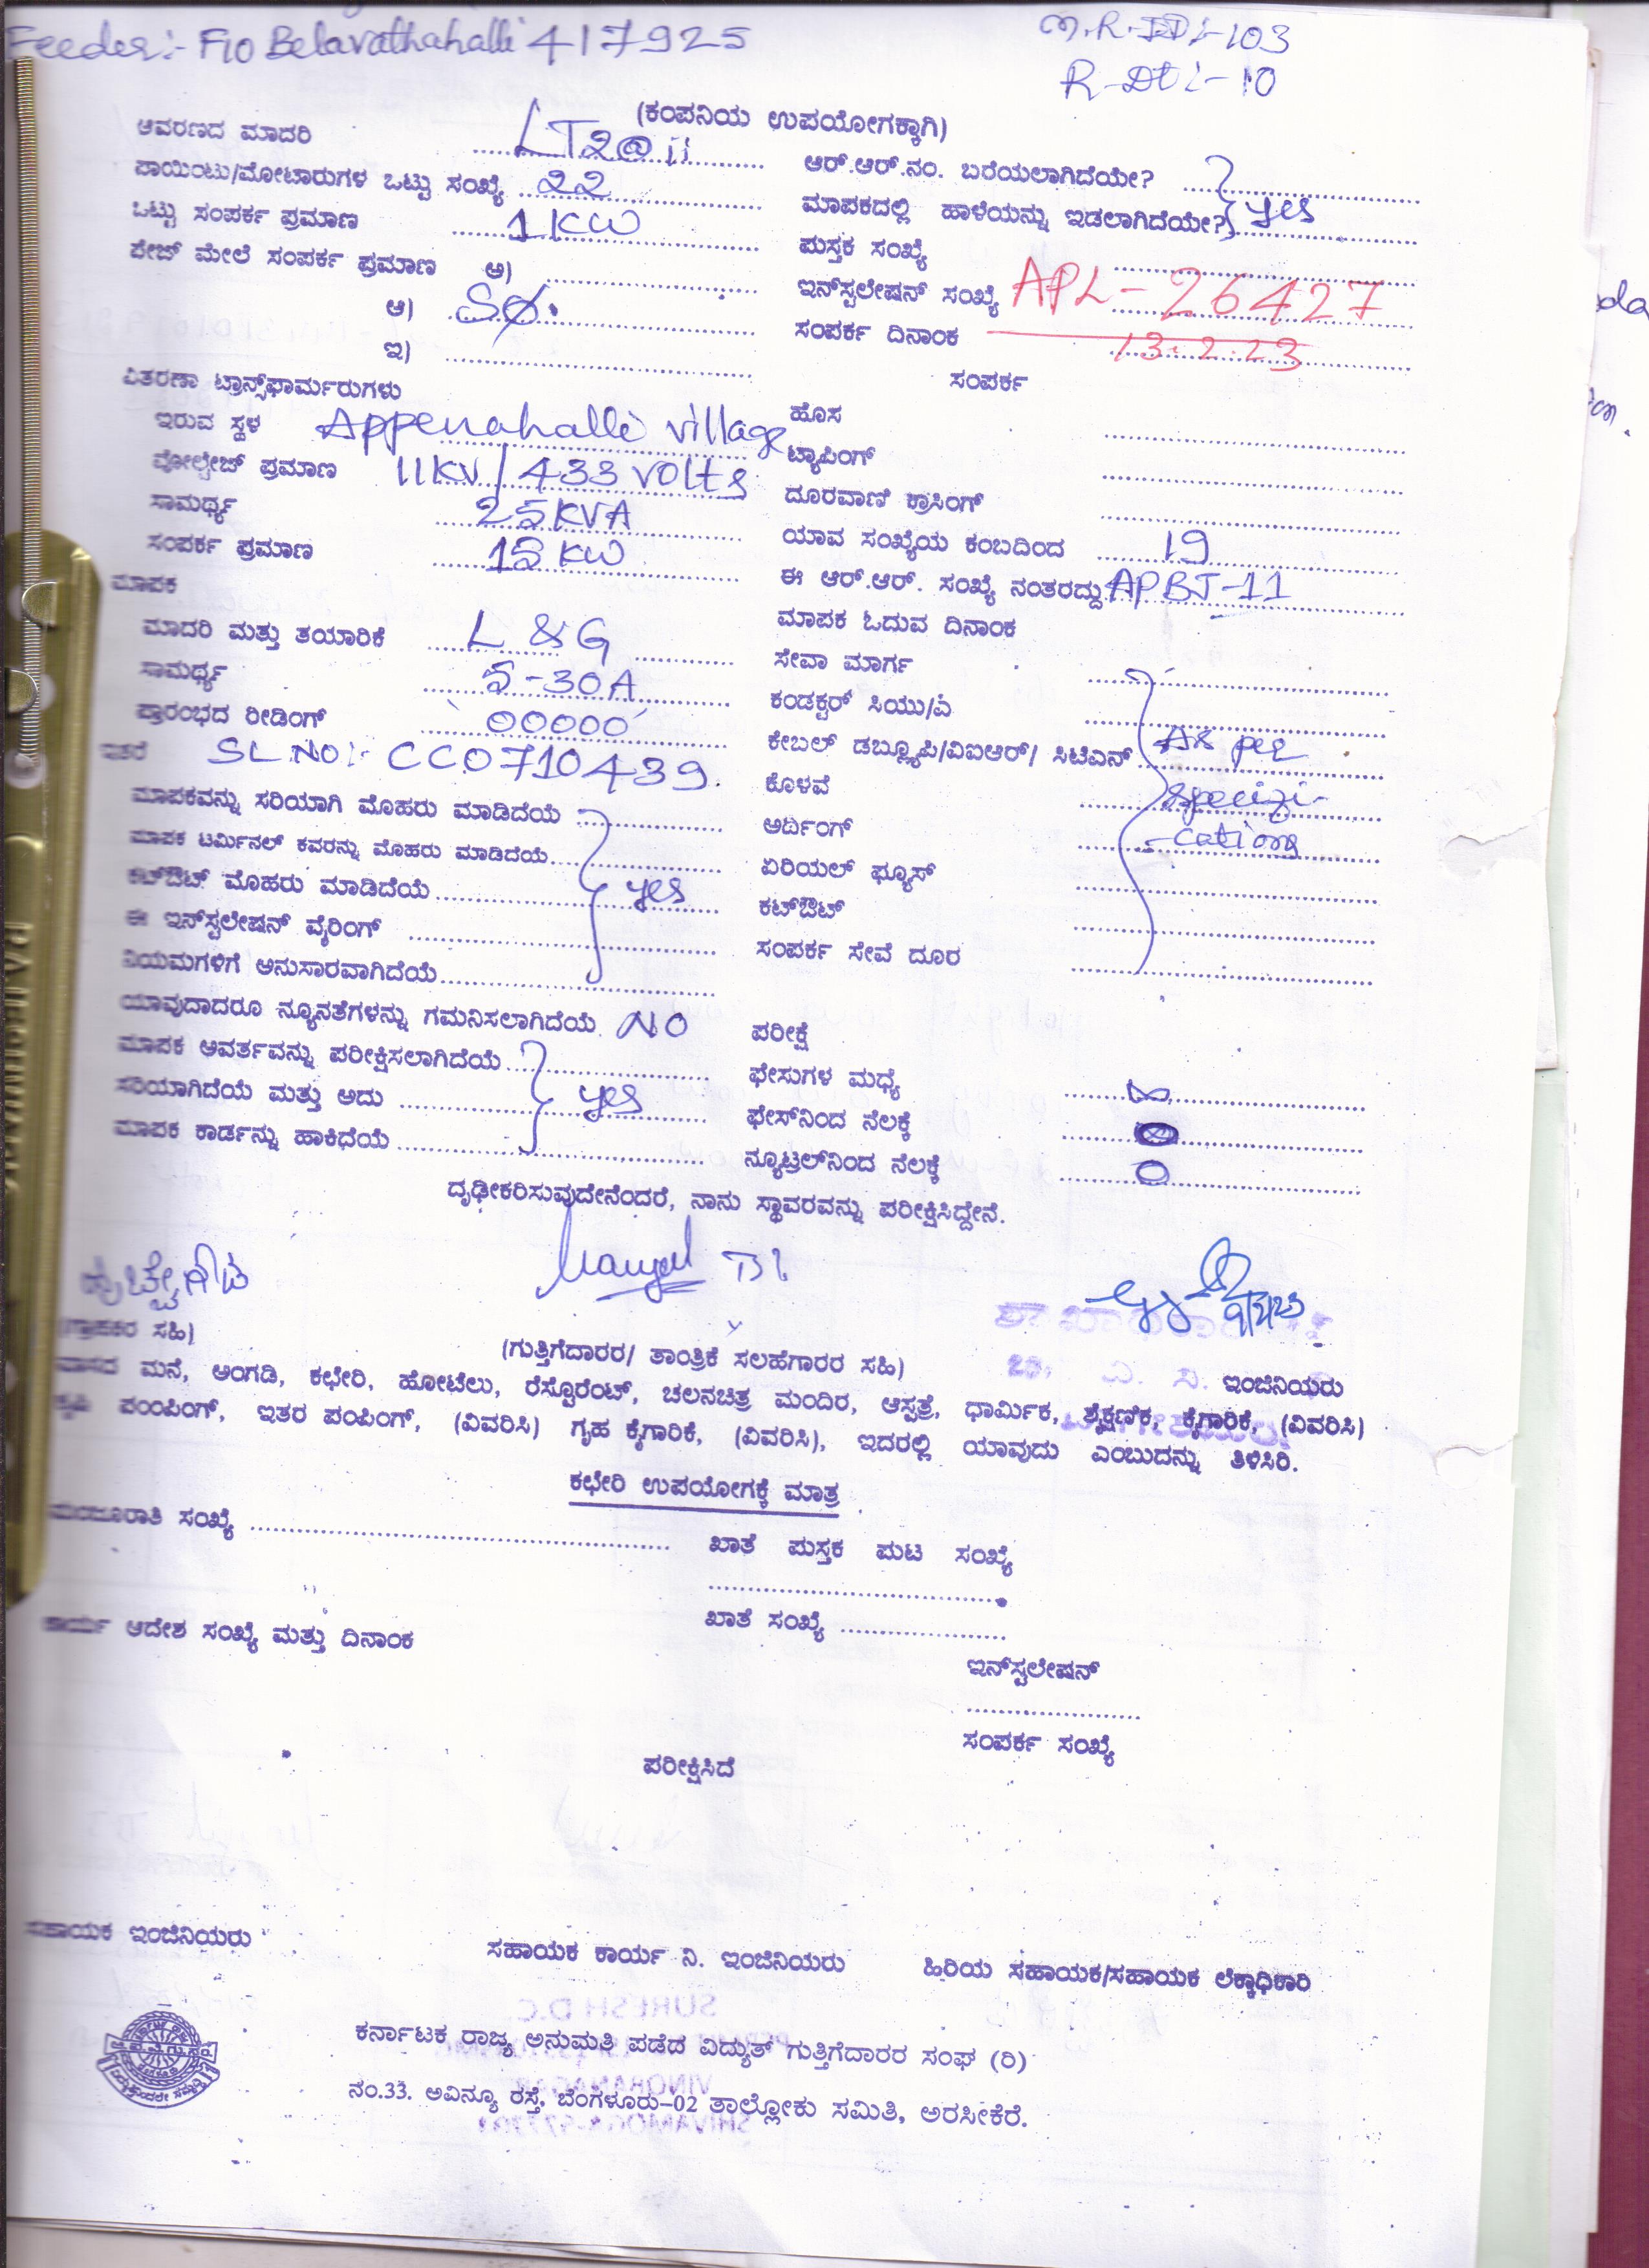 Feeder:- F10 Belavathahalli 417925
R-Dt:- 10
(ಕಂಪನಿಯ ಉಪಯೋಗಕ್ಕಾಗಿ)
ಆವರಣದ ಮಾದರಿ LT2@ii
ಪಾಯಿಂಟು/ಮೋಟಾರುಗಳ ಒಟ್ಟು ಸಂಖ್ಯೆ 22
ಒಟ್ಟು ಸಂಪರ್ಕ ಪ್ರಮಾಣ 1KW
ಪೇಜ್ ಮೇಲೆ ಸಂಪರ್ಕ ಪ್ರಮಾಣ ಅ)
ಆ) Sø.
ಇ)
ವಿತರಣಾ ಟ್ರಾನ್ಸ್‌ಫಾರ್ಮರುಗಳು
ಇರುವ ಸ್ಥಳ Appenahalli village
ವೋಲ್ಟೇಜ್ ಪ್ರಮಾಣ 11KV/433 volts
ಸಾಮರ್ಥ್ಯ 25KVA
ಸಂಪರ್ಕ ಪ್ರಮಾಣ 15 KW
ಮಾಪಕ
ಮಾದರಿ ಮತ್ತು ತಯಾರಿಕೆ L &G
ಸಾಮರ್ಥ್ಯ 5-30A
ಪ್ರಾರಂಭದ ರೀಡಿಂಗ್ 00000
ಇತರೆ SL.NO:- CC0710439.
ಮಾಪಕವನ್ನು ಸರಿಯಾಗಿ ಮೊಹರು ಮಾಡಿದೆಯೆ
ಮಾಪಕ ಟರ್ಮಿನಲ್ ಕವರನ್ನು ಮೊಹರು ಮಾಡಿದೆಯೆ
ಕಟ್‌ಔಟ್ ಮೊಹರು ಮಾಡಿದೆಯೆ yes
ಈ ಇನ್‌ಸ್ಟಲೇಷನ್ ವೈರಿಂಗ್
ನಿಯಮಗಳಿಗೆ ಅನುಸಾರವಾಗಿದೆಯೆ
ಯಾವುದಾದರೂ ನ್ಯೂನತೆಗಳನ್ನು ಗಮನಿಸಲಾಗಿದೆಯೆ NO
ಮಾಪಕ ಆವರ್ತವನ್ನು ಪರೀಕ್ಷಿಸಲಾಗಿದೆಯೆ
ಸರಿಯಾಗಿದೆಯೆ ಮತ್ತು ಅದು yes
ಮಾಪಕ ಕಾರ್ಡನ್ನು ಹಾಕಿಧೆಯೆ
ಆರ್.ಆರ್.ನಂ. ಬರೆಯಲಾಗಿದೆಯೇ?
ಮಾಪಕದಲ್ಲಿ ಹಾಳೆಯನ್ನು ಇಡಲಾಗಿದೆಯೇ? yes
ಪುಸ್ತಕ ಸಂಖ್ಯೆ
ಇನ್‌ಸ್ಟಲೇಷನ್ ಸಂಖ್ಯೆ APL-26427
ಸಂಪರ್ಕ ದಿನಾಂಕ 13.2.23
ಸಂಪರ್ಕ
ಹೊಸ
ಟ್ಯಾಪಿಂಗ್
ದೂರವಾಣಿ ಕ್ರಾಸಿಂಗ್
ಯಾವ ಸಂಖ್ಯೆಯ ಕಂಬದಿಂದ 19
ಈ ಆರ್.ಆರ್. ಸಂಖ್ಯೆ ನಂತರದ್ದು APBJ-11
ಮಾಪಕ ಓದುವ ದಿನಾಂಕ
ಸೇವಾ ಮಾರ್ಗ
ಕಂಡಕ್ಟರ್ ಸಿಯು/ಎ
ಕೇಬಲ್ ಡಬ್ಲ್ಯೂಪಿ/ವಿಐಆರ್/ ಸಿಟಿಎಸ್ As per
ಕೊಳವೆ specifi-
ಅರ್ದಿಂಗ್ -cations
ಏರಿಯಲ್ ಫ್ಯೂಸ್
ಕಟ್‌ಔಟ್
ಸಂಪರ್ಕ ಸೇವೆ ದೂರ
ಪರೀಕ್ಷೆ
ಫೇಸುಗಳ ಮಧ್ಯೆ ∞
ಫೇಸ್‌ನಿಂದ ನೆಲಕ್ಕೆ
ನ್ಯೂಟ್ರಲ್‌ನಿಂದ ನೆಲಕ್ಕೆ 0
ದೃಢೀಕರಿಸುವುದೇನೆಂದರೆ, ನಾನು ಸ್ಥಾವರವನ್ನು ಪರೀಕ್ಷಿಸಿದ್ದೇನೆ.
(ಗ್ರಾಹಕರ ಸಹಿ)
(ಗುತ್ತಿಗೆದಾರರ/ ತಾಂತ್ರಿಕೆ ಸಲಹೆಗಾರರ ಸಹಿ)
ಇಂಜಿನಿಯರು
ವಾಸದ ಮನೆ, ಅಂಗಡಿ, ಕಛೇರಿ, ಹೋಟೆಲು, ರೆಸ್ಟೊರೆಂಟ್, ಚಲನಚಿತ್ರ ಮಂದಿರ, ಆಸ್ಪತ್ರೆ, ಧಾರ್ಮಿಕ, ಶೈಕ್ಷಣಿಕ, ಕೈಗಾರಿಕೆ, (ವಿವರಿಸಿ)
ಕೃಷಿ ಪಂಂಪಿಂಗ್, ಇತರ ಪಂಪಿಂಗ್, (ವಿವರಿಸಿ) ಗೃಹ ಕೈಗಾರಿಕೆ, (ವಿವರಿಸಿ), ಇದರಲ್ಲಿ ಯಾವುದು ಎಂಬುದನ್ನು ತಿಳಿಸಿರಿ.
ಕಛೇರಿ ಉಪಯೋಗಕ್ಕೆ ಮಾತ್ರ
ಮಂಜೂರಾತಿ ಸಂಖ್ಯೆ
ಖಾತೆ ಪುಸ್ತಕ ಪುಟ ಸಂಖ್ಯೆ
ಖಾತೆ ಸಂಖ್ಯೆ
ಕಾರ್ಯ ಆದೇಶ ಸಂಖ್ಯೆ ಮತ್ತು ದಿನಾಂಕ
ಇನ್‌ಸ್ಟಲೇಷನ್
ಸಂಪರ್ಕ ಸಂಖ್ಯೆ
ಪರೀಕ್ಷಿಸಿದೆ
ಸಹಾಯಕ ಇಂಜಿನಿಯರು
ಸಹಾಯಕ ಕಾರ್ಯ ನಿ. ಇಂಜಿನಿಯರು
ಹಿರಿಯ ಸಹಾಯಕ/ಸಹಾಯಕ ಲೆಕ್ಕಾಧಿಕಾರಿ
ಕರ್ನಾಟಕ ರಾಜ್ಯ ಅನುಮತಿ ಪಡೆದ ವಿದ್ಯುತ್ ಗುತ್ತಿಗೆದಾರರ ಸಂಘ (ರಿ)
ನಂ.33. ಅವಿನ್ಯೂ ರಸ್ತೆ, ಬೆಂಗಳೂರು-02 ತಾಲ್ಲೋಕು ಸಮಿತಿ, ಅರಸೀಕೆರೆ.